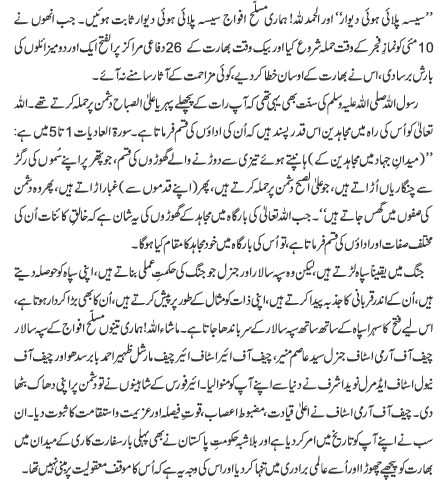 ’’سیسہ پلائی ہوئی دیوار‘‘ اور الحمدللہ! ہماری مسلّح افواج سیسہ پلائی ہوئی دیوار ثابت ہوئیں۔ جب انھوں نے
10 مئی کو نمازِ فجر کے وقت حملہ شروع کیا اور بیک وقت بھارت کے 26 دفاعی مراکز پر الفتح ایک اور دو میزائلوں کی
بارش برسادی، اس نے بھارت کے اوسان خطا کر دیے، کوئی مزاحمت کے آثار سامنے نہ آئے۔
رسول اللہ صلی اللہ علیہ وسلم کی سنّت بھی یہی تھی کہ آپ رات کے پچھلے پہر یا علی الصباح دشمن پر حملہ کرتے تھے۔ اللہ
تعالیٰ کو اُس کی راہ میں مجاہدین اس قدر پسند ہیں کہ اُن کی اداؤں کی قسم فرماتا ہے۔ سورۃ العادیات 1تا5 میں ہے:
’’(میدانِ جہاد میں مجاہدین کے) ہانپتے ہوئے تیزی سے دوڑنے والے گھوڑوں کی قسم، جو پتھر پر اپنے سُموں کی رگڑ
سے چنگاریاں اُڑاتے ہیں، جو علی الصبح دشمن پر حملہ کرتے ہیں، پھر (اپنے قدموں سے) غبار اڑاتے ہیں، پھر وہ دشمن
کی صفوں میں گھس جاتے ہیں‘‘۔ جب اللہ تعالیٰ کی بارگاہ میں مجاہد کے گھوڑوں کی یہ شان ہے کہ خالقِ کائنات اُن کی
مختلف صفات اور اداؤں کی قسم فرماتا ہے، تو اُس کی بارگاہ میں خود مجاہد کا مقام کیا ہوگا۔
جنگ میں یقینا سپاہ لڑتے ہیں، لیکن وہ سپہ سالار اور جنرل جو جنگ کی حکمتِ عملی بناتے ہیں، اپنی سپاہ کو حوصلہ دیتے
ہیں، اُن کے اندر قربانی کا جذبہ پیدا کرتے ہیں، اپنی ذات کو مثال کے طور پر پیش کرتے ہیں، اُن کا بھی بڑا کردار ہوتا ہے،
اس لیے فتح کا سہرا سپاہ کے ساتھ ساتھ سپہ سالار کے سر باندھا جاتا ہے۔ ماشاء اللہ! ہماری تینوں مسلّح افواج کے سپہ سالار
چیف آف آرمی اسٹاف جنرل سید عاصم منیر، چیف آف ائیر اسٹاف ائیر چیف مارشل ظہیر احمد بابر سدھو اور چیف آف
نیول اسٹاف ایڈمرل نوید اشرف نے دنیا سے اپنے آپ کو منوالیا۔ ائیر فورس کے شاہینوں نے تو دشمن پر اپنی دھاک بٹھا
دی۔ چیف آف آرمی اسٹاف نے اعلیٰ قیادت، مضبوط اعصاب، قوتِ فیصلہ اور عزیمت و استقامت کا ثبوت دیا۔ ان
سب نے اپنے آپ کو تاریخ میں امر کر دیا ہے اور بلاشبہ حکومتِ پاکستان نے بھی پہلی بار سفارت کاری کے میدان میں بھارت
کو پیچھے چھوڑا اور اُسے عالمی برادری میں تنہا کر دیا اور اس کی وجہ یہ ہے کہ اُس کا موقف معقولیت پر مبنی نہیں تھا۔